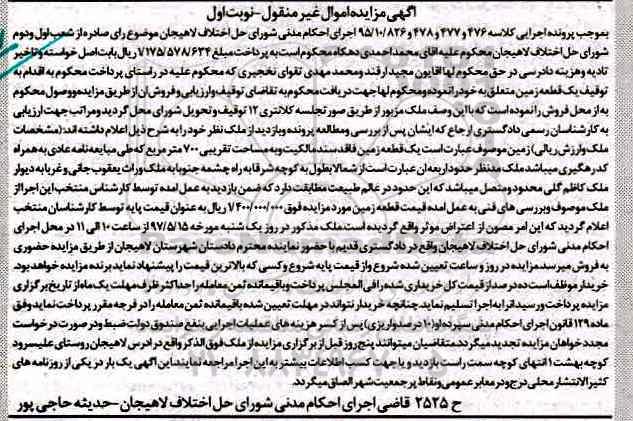 آگهی مزایده اموال غیر منقول-نوبت اول
بموجب پرونده اجرایی کلاسه ۴۷۶ و ۴۷۷ و ۴۷۸ و ۹۵/۱۰/۸۲۶ اجرای احکام مدنی شورای حل اختلاف لاهیجان موضوع رای صادره از شعب اول و دوم
شورای حل اختلاف لاهیجان محکوم علیه اقای محمد احمدی دهکاه محکوم است به پرداخت مبلغ ۷۱۷۵/۵۷۸/۶۳۴ ریال بابت اصل خواسته و تاخیر
تادیه و هزینه دادرسی در حق محکوم لها اقایون مجید ارفند ومحمد مهدی تقوای نخجیری که محکوم علیه در راستای پرداخت محکوم به اقدام به
توقیف یک قطعه زمین متعلق به خود را نموده و محکوم لها جهت دریافت محکوم به تقاضای توقیف و ارزیابی و فروش ان از طریق مزایده و وصول محکوم
به از محل فروش را نموده است که با این وصف ملک مزبور از طریق صور تجلسه کلانتری ۱۲ توقیف و تحویل شورای محل گردید و مراتب جهت ارزیابی
به کارشناسان رسمی دادگستری ارجاع که ایشان پس از بررسی و مطالعه پرونده و بازدید از ملک نظر خود را به شرح ذیل اعلام داشته اند:(مشخصات
ملک و ارزش ریالی) زمین موصوف عبارت است یک قطعه زمین فاقد سند مالکیت و به مساحت تقریبی ۷۰۰ متر مربع که طی مبایعه نامه عادی به همراه
کد رهگیری میباشد ملک مدنظر حدود اربعه ان عبارت است از شمالا بطول به کوچه شرقا به راه چشمه جنوبا به ملک وراث یعقوب جانی و غربا به دیوار
ملک کاظم گلی محدود و متصل میباشد که این حدود در عالم طبیعت مطابقت دارد که ضمن بازدید به عمل امده توسط کارشناس منتخب این اجرا از
ملک موصوف و بررسی های فنی به عمل امده قیمت قطعه زمین مورد مزایده فوق ۷۴۰۰/۰۰۰/۰۰۰ ریال به عنوان قیمت پایه توسط کارشناسان منتخب
اعلام گردید که این امر مصون از اعتراض موثر واقع گردیده است.ملک مذکور در روز یک شنبه مورخه ۹۷/۵/۱۵ از ساعت ۱۰ الی ۱۱ در محل اجرای
احکام مدنی شورای حل اختلاف لاهیجان واقع در دادگستری قدیم با حضور نماینده محترم دادستان شهرستان لاهیجان از طریق مزایده حضوری
به فروش میرسد مزایده در روز و ساعت تعیین شده شروع و از قیمت پایه شروع و کسی که بالاترین قیمت را پیشنهاد نماید برنده مزایده خواهد بود.
خریدار موظف است ده در صد از قیمت کل خریداری شده را فی المجلس پرداخت و باقیمانده ثمن معامله را حداکثر ظرف مهلت یک ماه از تاریخ برگزاری
مزایده پرداخت و رسید انرا به اجرا تسلیم نماید. چنانچه خریدار نتواند در مهلت تعیین شده باقیمانده ثمن معامله را در فرجه مقرر پرداخت نماید وفق
ماده ۱۲۹ قانون اجرای احکام مدنی سپرده او(۱۰ در صد واریزی) پس از کسر هزینه های عملیات اجرایی بنفع صندوق دولت ضبط و در صورت درخواست
مجدد خواهان مزایده تجدید میگردد.متقاضیان میتوانند پنج روز قبل از برگزاری مزایده از ملک فوق الذکر واقع در ادرس لاهیجان روستای علیسرود
کوچه بهشت ۱ انتهای کوچه سمت راست بازدید و یا جهت کسب اطلاعات بیشتر به این اجرا مراجعه نمایند.این آگهی یک بار در یکی از روزنامه های
کثیرالانتشار محلی درج و در معابر عمومی و نقاط پر جمعیت شهر الصاق میگردد.
ح ۲۵۲۵ قاضی اجرای احکام مدنی شورای حل اختلاف لاهیجان-حدیثه حاجی پور